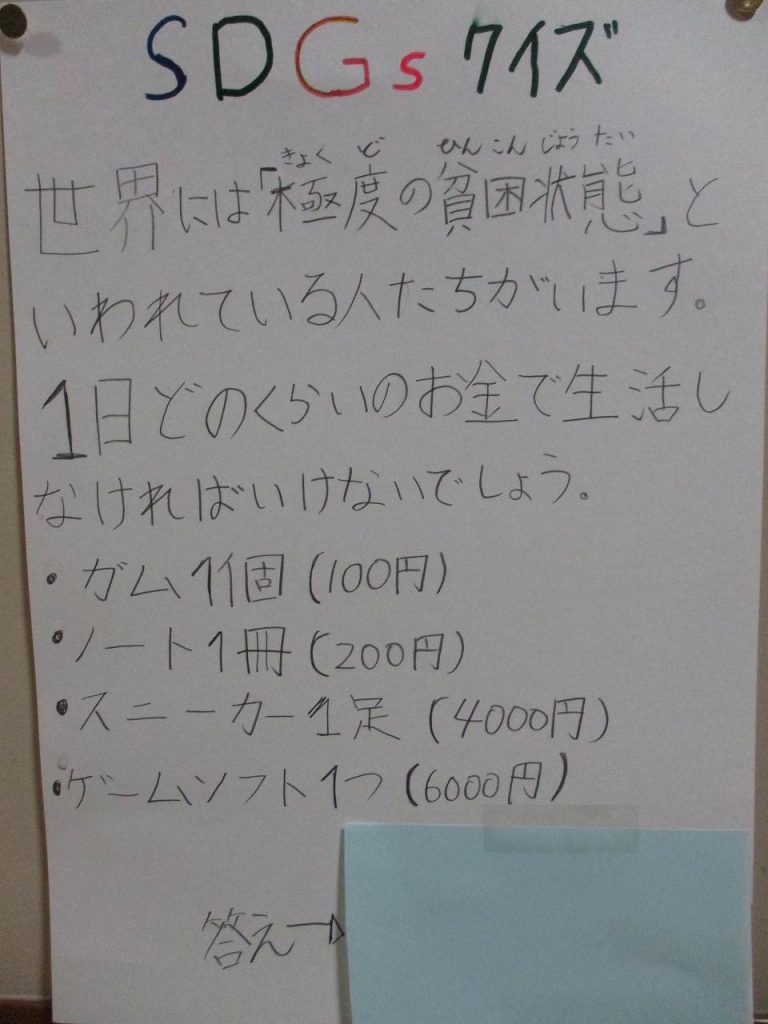 SDGsクイズ
きょくど ひんこんじょうたい
世界には「極度の貧困状態」と
いわれている人たちがいます。
1日どのくらいのお金で生活し
なければいけないでしょう。
・ガム1個(100円)
・ノート1冊(200円)
・スニーカー1足(4000円)
・ゲームソフト1つ(6000円)
答え→